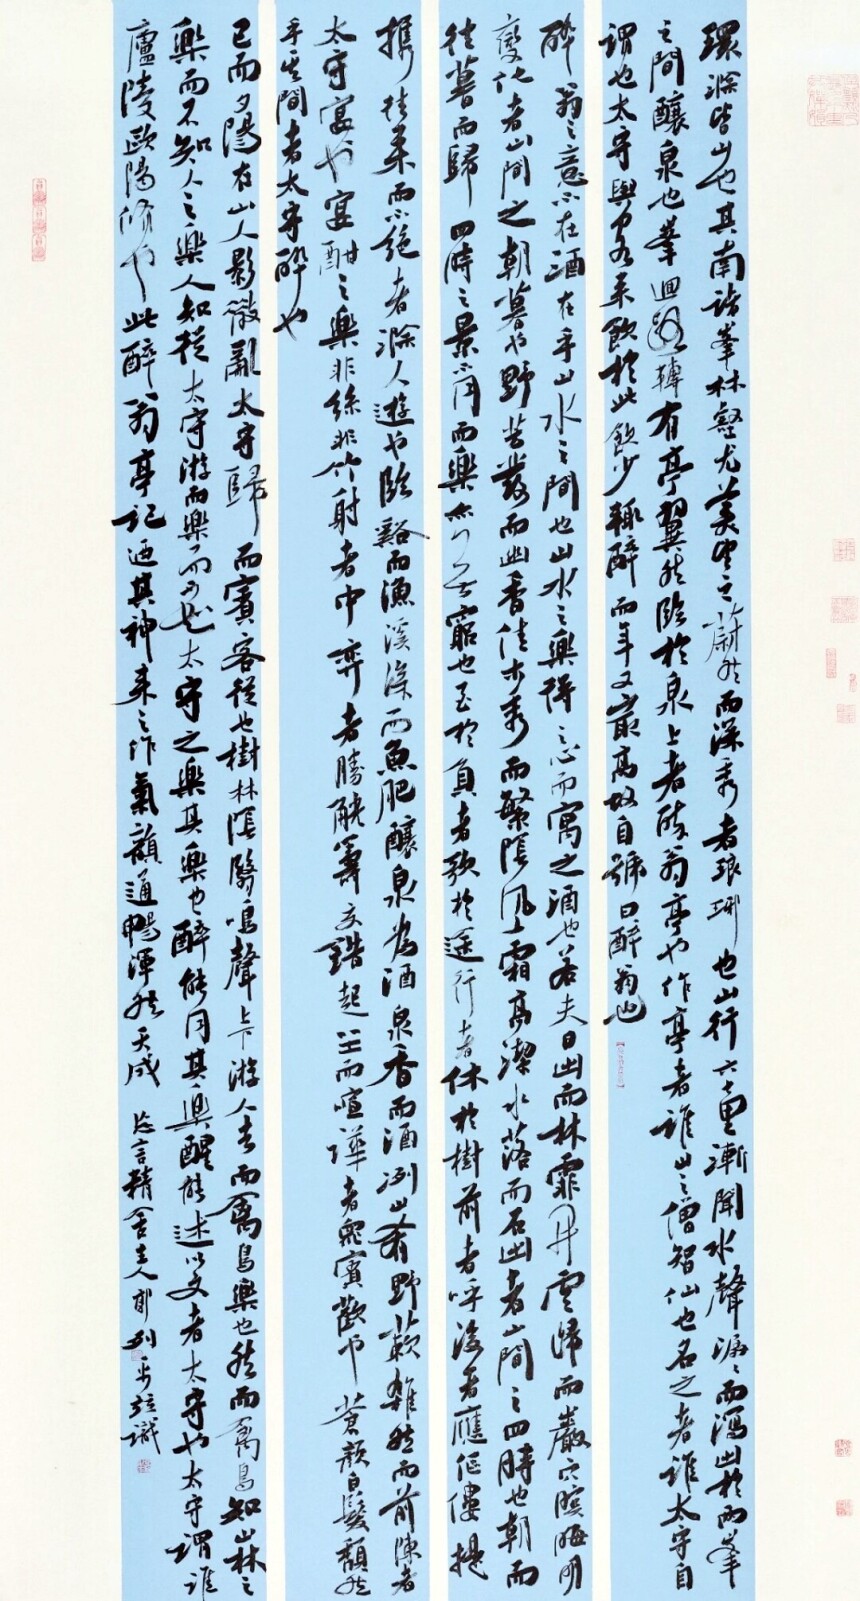 環滁皆山也其南諸峯林壑尤美望之蔚然而深秀者琅琊也山行六七里漸聞水聲潺潺而瀉出於兩峯
之間釀泉也峯迴路轉有亭翼然臨於泉上者醉翁亭也作亭者誰山之僧智仙也名之者誰太守自
謂也太守與客來飲於此飲少輒醉而年又最高故自號曰醉翁也
醉翁之意不在酒在乎山水之間也山水之樂得之心而寓之酒也若夫日出而林霏開雲歸而巖穴暝晦明
變化者山間之朝暮也野芳發而幽香佳木秀而繁陰風霜高潔水落而石出者山間之四時也朝而
往暮而歸四時之景不同而樂亦無窮也至於負者歌於途行者休於樹前者呼後者應傴僂提
攜往來而不絕者滁人遊也臨谿而漁溪深而魚肥釀泉為酒泉香而酒洌山肴野蔌雜然而前陳者
太守宴也宴酣之樂非絲非竹射者中弈者勝觥籌交錯起坐而喧譁者衆賓歡也蒼顏白髮頹然
乎其間者太守醉也
已而夕陽在山人影散亂太守歸而賓客從也樹林陰翳鳴聲上下游人去而禽鳥樂也然而禽鳥知山林之
樂而不知人之樂人知從太守游而樂而不知太守之樂其樂也醉能同其樂醒能述以文者太守也太守謂誰
廬陵歐陽修也此醉翁亭記迺其神來之作氣韻通暢渾然天成 言精舍主人 識